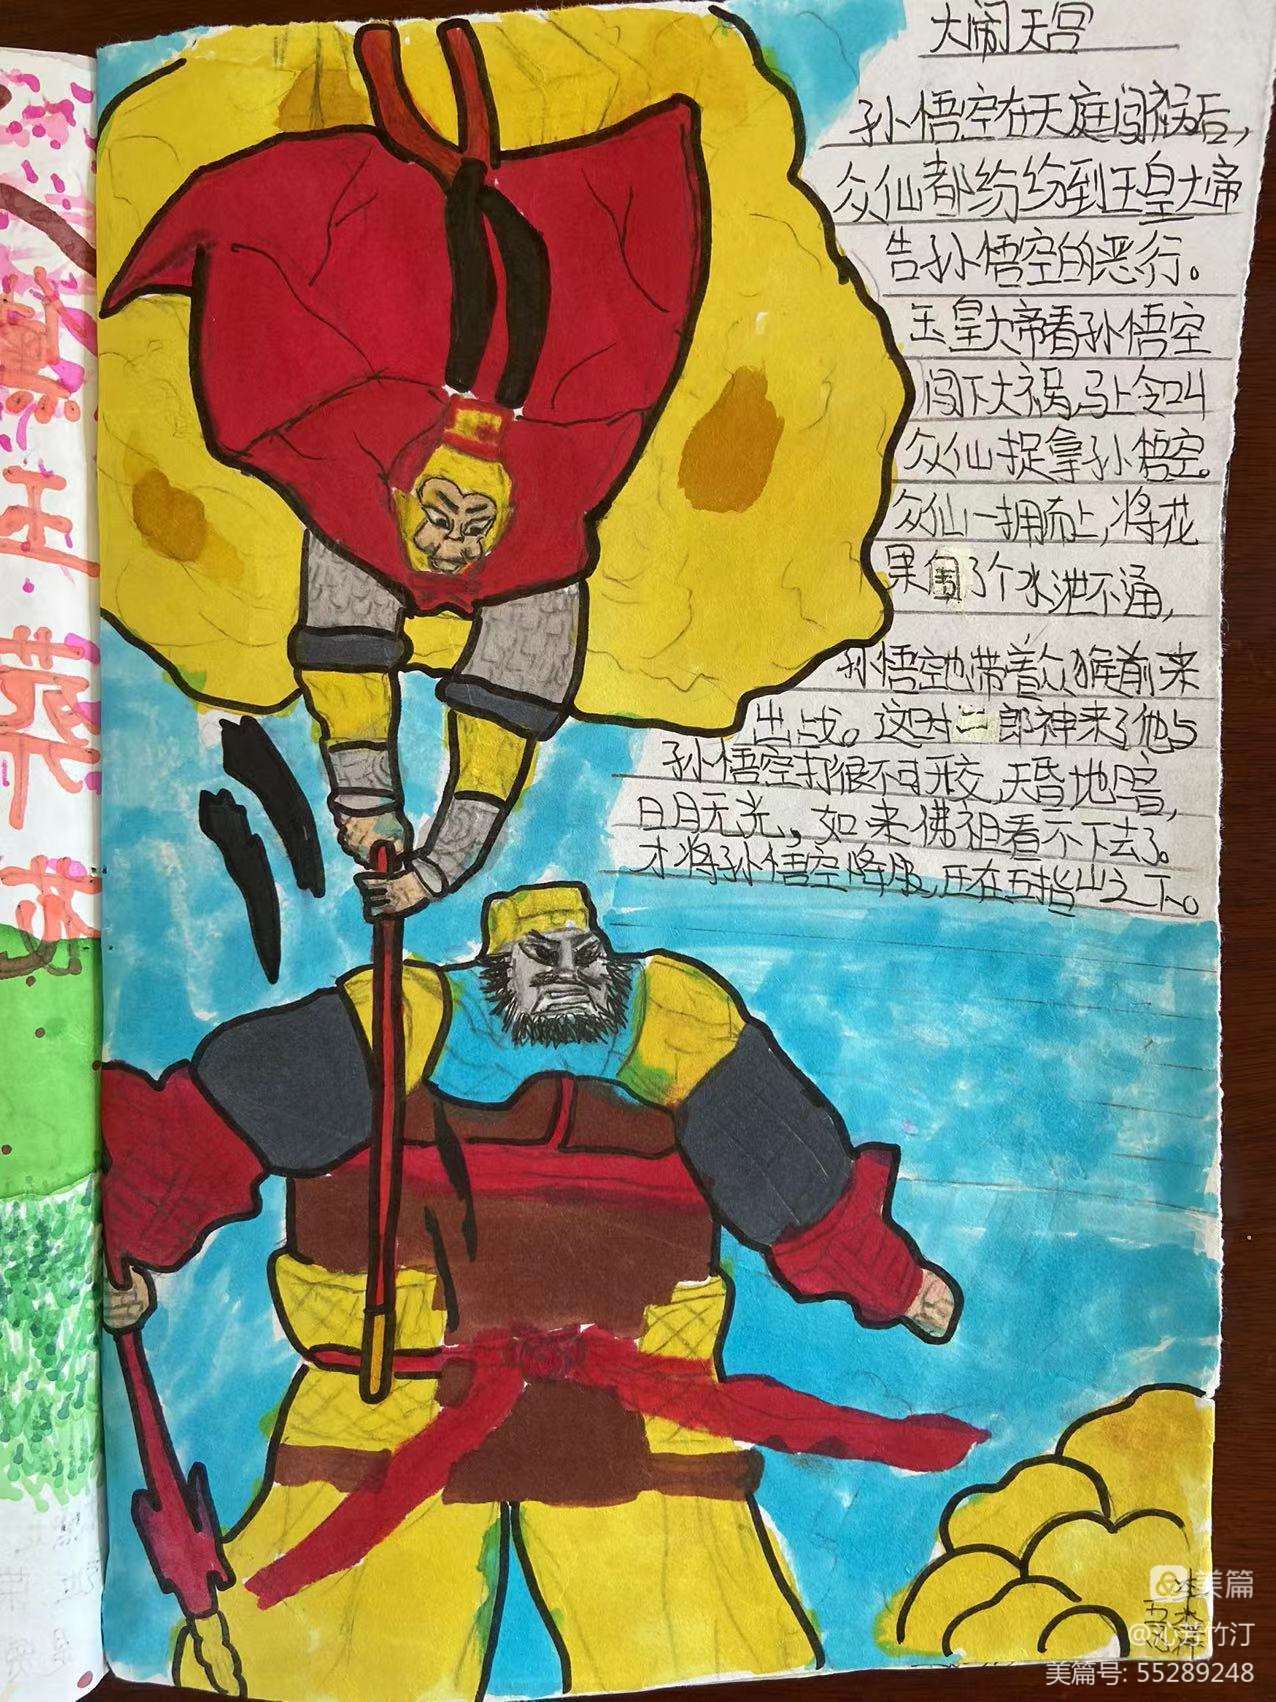 大闹天宫
孙悟空在天庭闯祸后,
众仙都纷纷到玉皇大帝
告孙悟空的恶行。
玉皇大帝看孙悟空
闯下大祸,马上令叫
众仙捉拿孙悟空。
众仙一拥而上,将花
果围了个水泄不通,
孙悟空也带着众猴前来
出战。这时二郎神来了他与
孙悟空打很不可开交,天昏地暗,
日月无光,如来佛祖看不下去了。
才将孙悟空降服,压在五指山之下。
美篇
竹汀
美篇号: 55289248